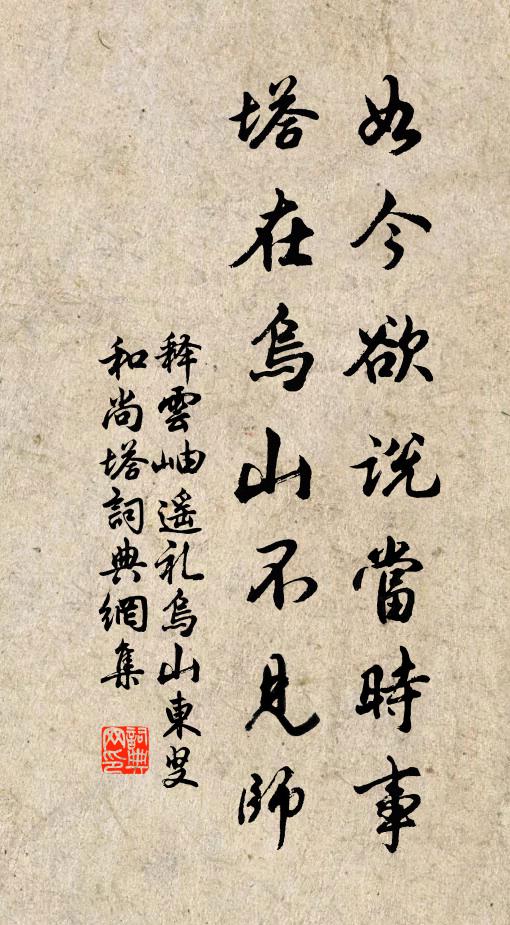 如今欲説當時事
塔在烏山不見師
释雲岫遥礼烏山東叟
和尚塔詞典網集
詞典
网印